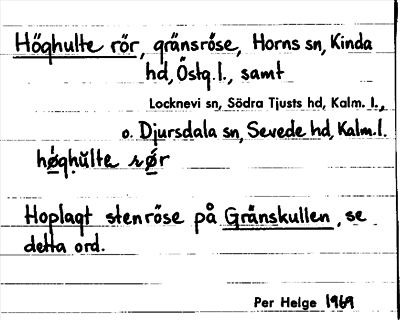 Höghulte rör, gränsröse, Horns sn, Kinda
hd, Östg. l., samt
Locknevi sn, Södra Tjusts hd, Kalm. l.,
o. Djursdala sn, Sevede hd, Kalm. l.
hǿghŭlte rǿr
Hoplagt stenröse på Gränskullen, se
detta ord.
Per Helge 1969